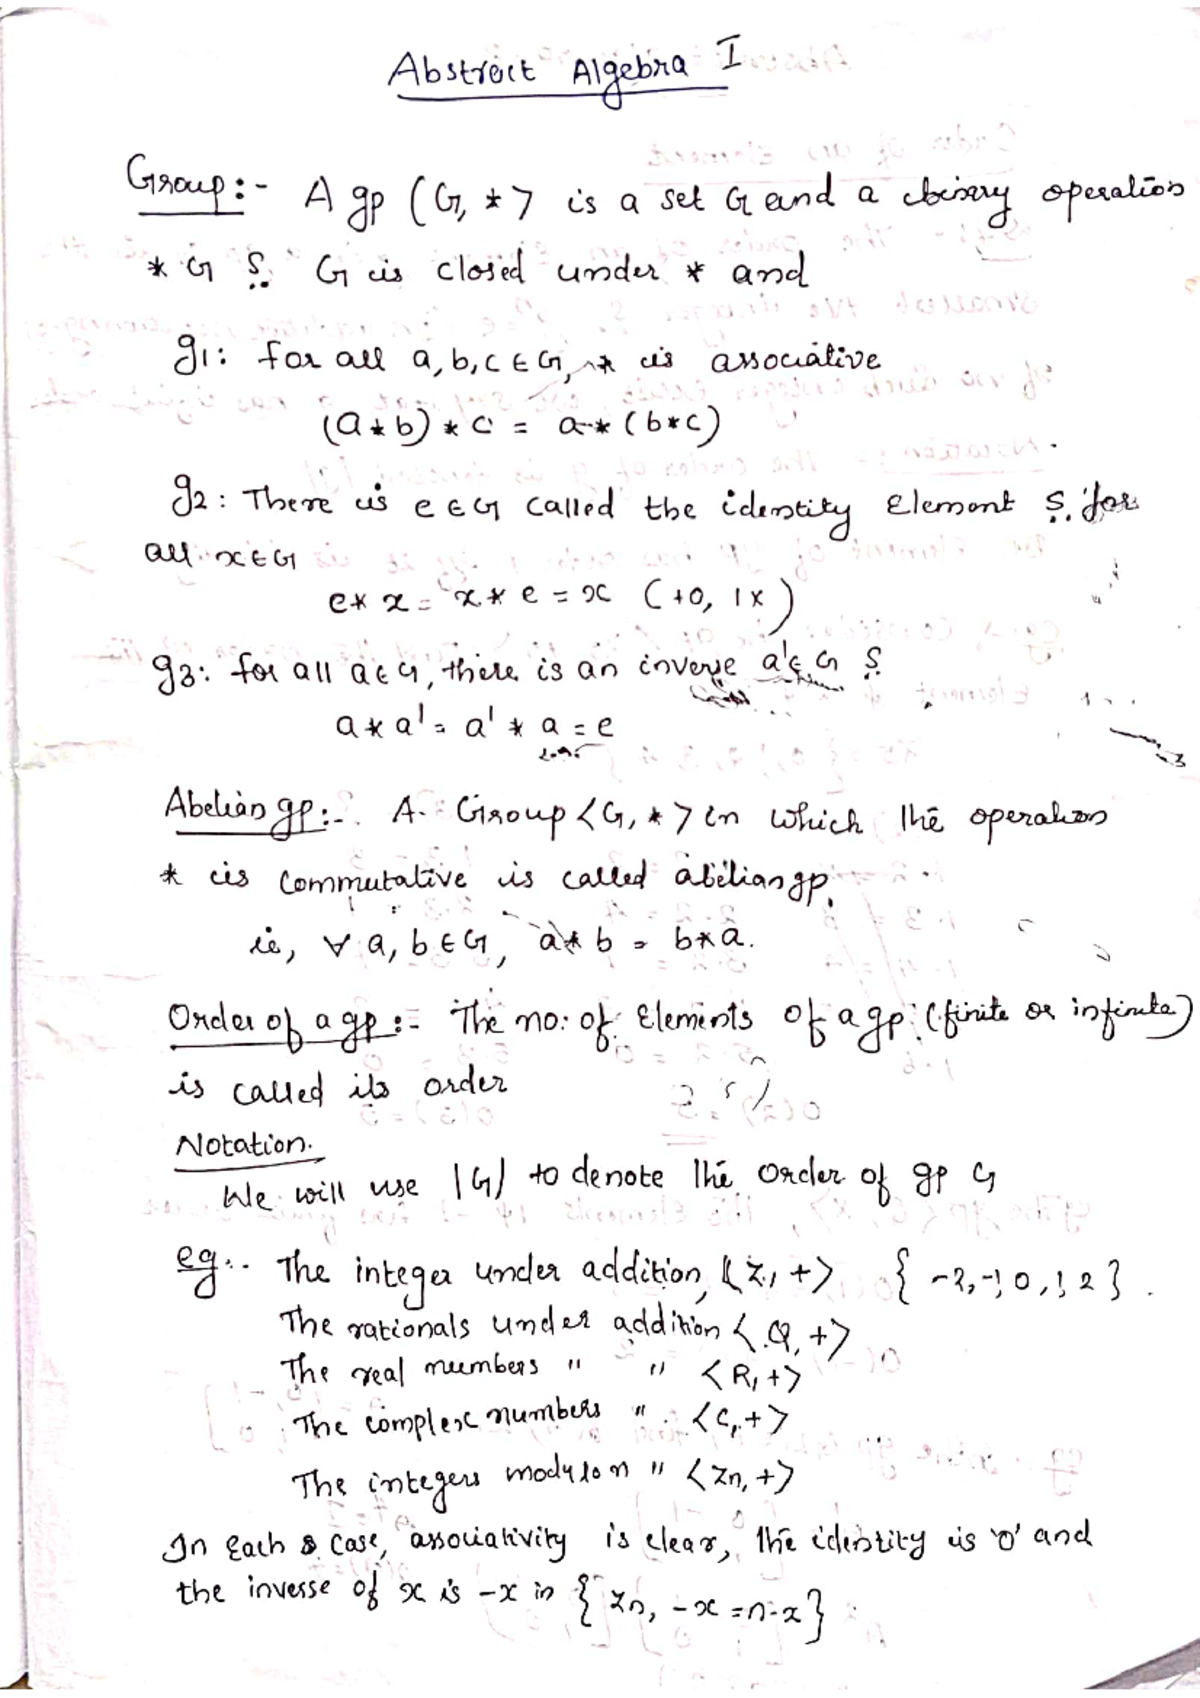 Abstract Algebra I
Group:- A gp (G, *> is a set G and a binary operation
* G S. G is closed under * and
g1: for all a, b, c ∈ G, * is associative
(a * b) * c = a * (b * c)
g2: There is e ∈ G called the identity Element S. for
all x ∈ G
e * x = x * e = x (+0, 1x)
g3: for all a ∈ G, there is an inverse a' ∈ G S.
a * a' = a' * a = e
Abelian gp:- A Group <G, *> in which the operation
* is commutative is called abelian gp.
ie, ∀ a, b ∈ G, a * b = b * a.
Order of a gp:- The no: of Elements of a gp (finite or infinite)
is called its order
Notation.
We will use |G| to denote the order of gp G
eg:- The integer under addition, <Z, +> { -2, -1, 0, 1, 2 }.
The rationals under addition <Q, +>
The real numbers " " <R, +>
The complex numbers " <C, +>
The integers modulo n " <Zn, +>
In Each case, associativity is clear, the identity is '0' and
the inverse of x is -x in { Zn, -x = n-x }